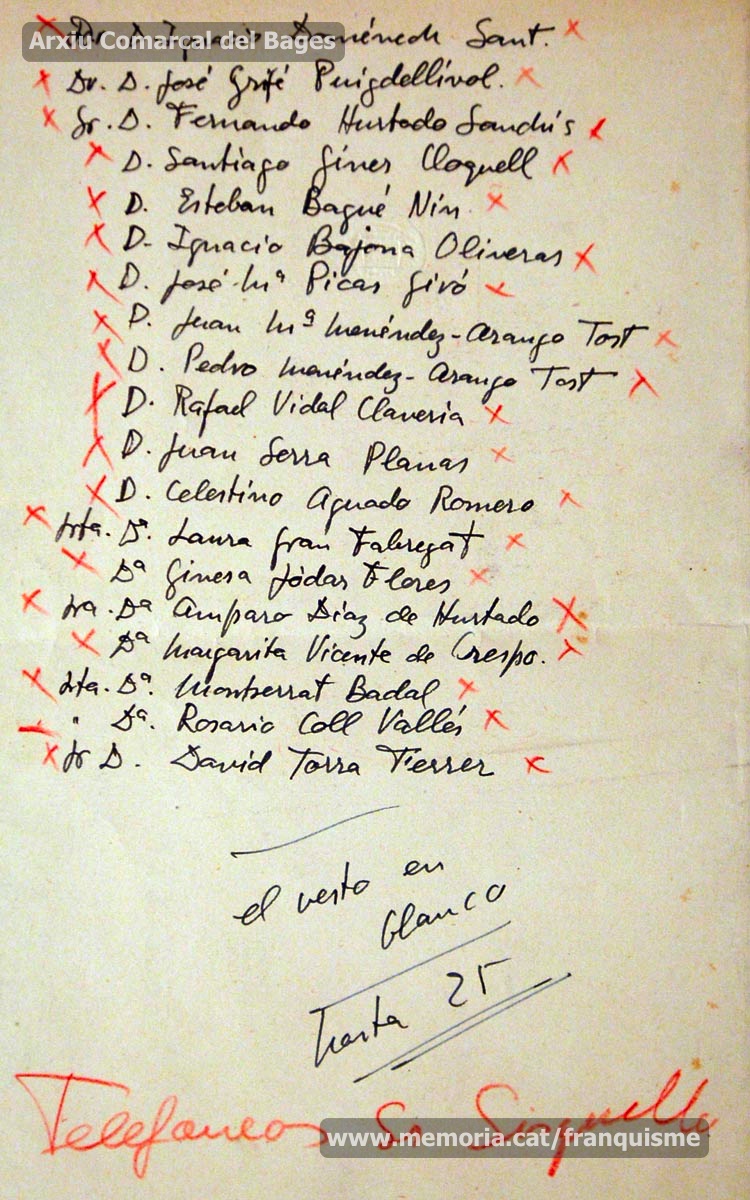 Arxiu Comarcal del Bages
Dr. D. Ignacio Doménech Sant.
Dr. D. José Grifé Puigdellívol.
Sr. D. Fernando Hurtado Sanchís
D. Santiago Giner Cloquell
D. Esteban Bagué Nin
D. Ignacio Bajona Oliveras
D. José Mª Picas Giró
D. Juan Mª Menéndez-Arango Tost
D. Pedro Menéndez-Arango Tost
D. Rafael Vidal Claveria
D. Juan Serra Planas
D. Celestino Aguado Romero
Srta. Dª. Laura Grau Fabregat
Dª Ginesa Jódar Flores
Sra. Dª Amparo Díaz de Hurtado
Dª Margarita Vicente de Crespo.
Srta. Dª. Montserrat Badal
" Dª. Rosario Coll Vallés
Sr D. David Torra Ferrer
el resto en
blanco
hasta 25
Sr
www.memoria.cat/franquisme